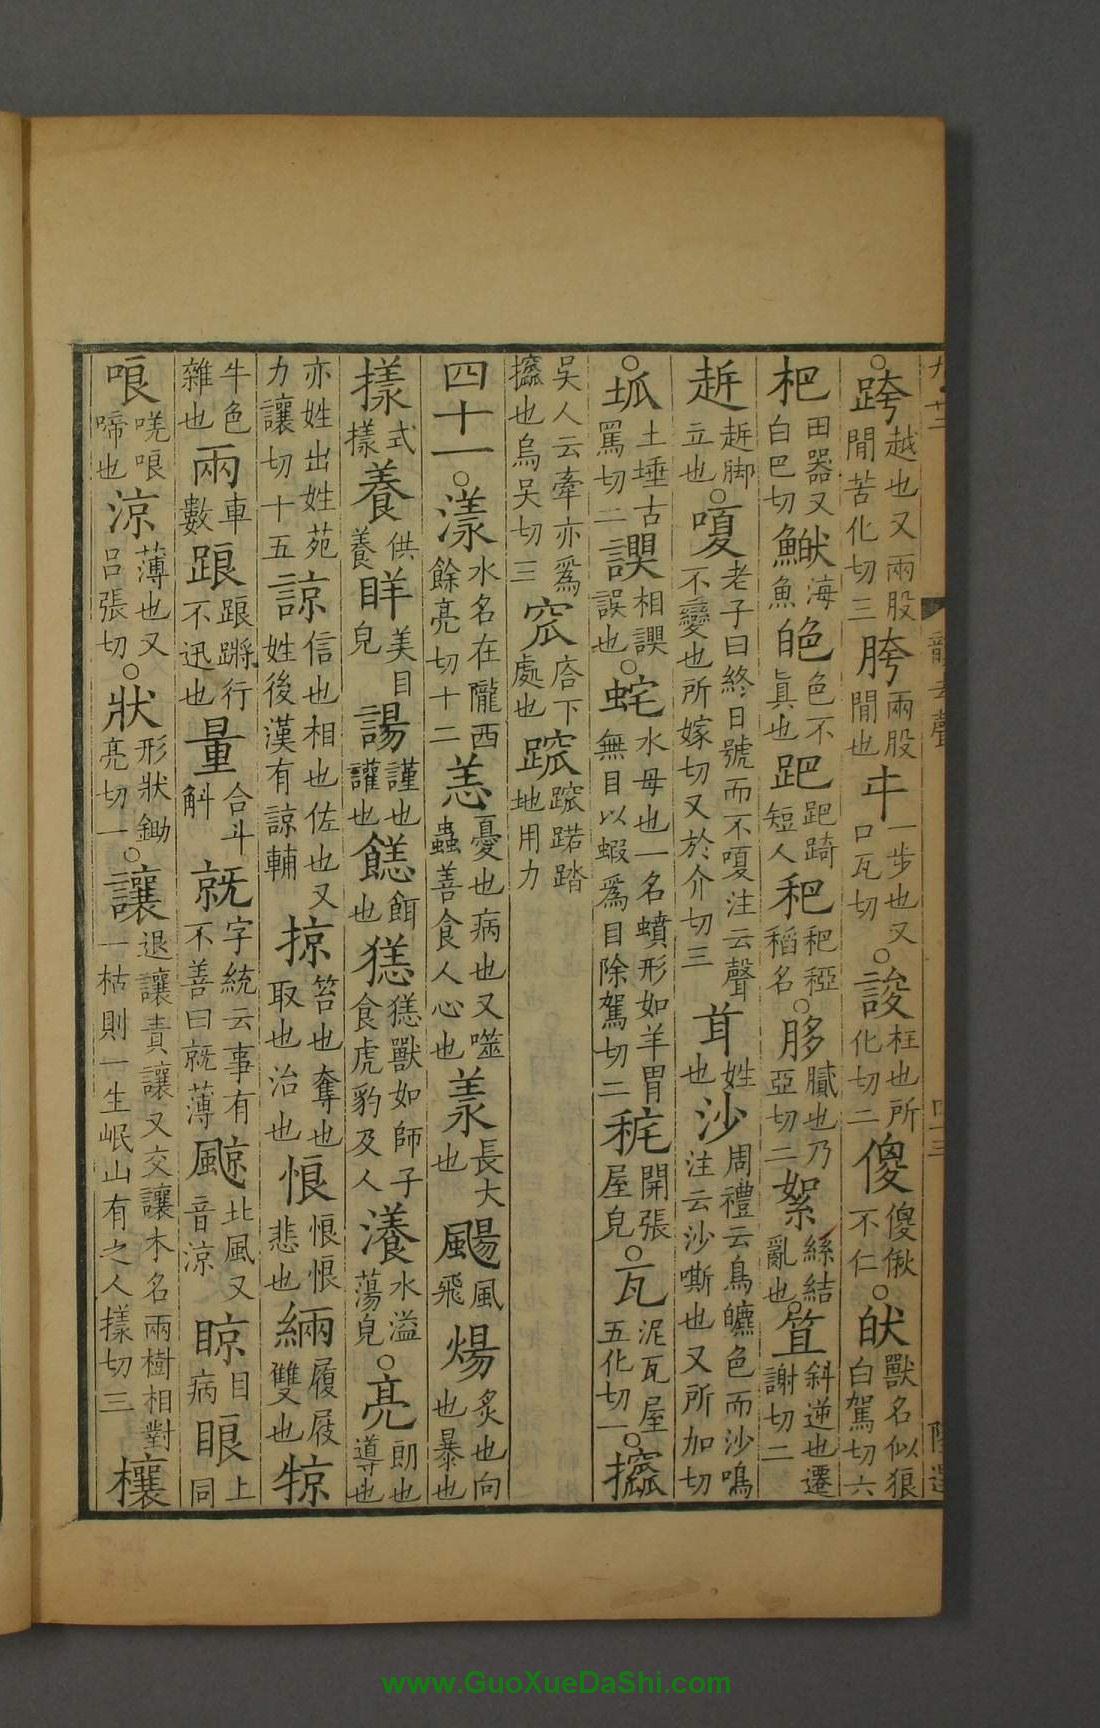 ○跨越也又兩股間苦化切三胯兩股間也㐄一步也又口瓦切○誜枉也所化切二傻傻偢不仁○㹀獸名似狼白駕切六
杷田器又白巴切鮲海魚皅色不真也跁跁跒短人䆉䆉稏稻名○䏧膩也乃亞切二絮絲結亂也○笡斜逆也遷謝切二
䟩䟩脚立也○嗄老子曰終日號而不嗄注云聲不變也所嫁切又於介切三䒤姓也沙周禮云鳥皫色而沙鳴注云沙嘶也又所加切
○坬土埵古罵切二䛻相䛻誤也○䖳水母也一名蟦形如羊胃無目以蝦爲目除駕切二秅開張屋皃○瓦泥瓦屋五化切一○攨
吳人云牽亦爲攨也烏吴切三窊㕐下處也䠚䠚踞踏地用力
四十一○漾水名在隴西餘亮切十二恙憂也病也又噬蟲善食人心也羕長大也颺風飛煬炙也向也暴也
㨾式㨾養供養眻美目皃諹讙也讙也䭥餌也㺊㺊獸如師子食虎豹及人瀁水溢蕩皃○亮朗也導也
亦姓出姓苑力讓切十五諒信也相也佐也又姓後漢有諒輔掠笞也奪也取也治也悢悢悢悲也緉履屐雙也㹁
牛色雜也兩車數踉踉蹡行不迅也量合斗斛就字統云事有不善曰就薄飉北風又音涼晾目病眼上同
哴唴哴啼也涼薄也又吕張切○狀形狀鋤亮切一○讓退讓責讓又交讓木名兩樹相對一枯則一生岷山有之人㨾切三欀
www.GuoXueDaShi.com